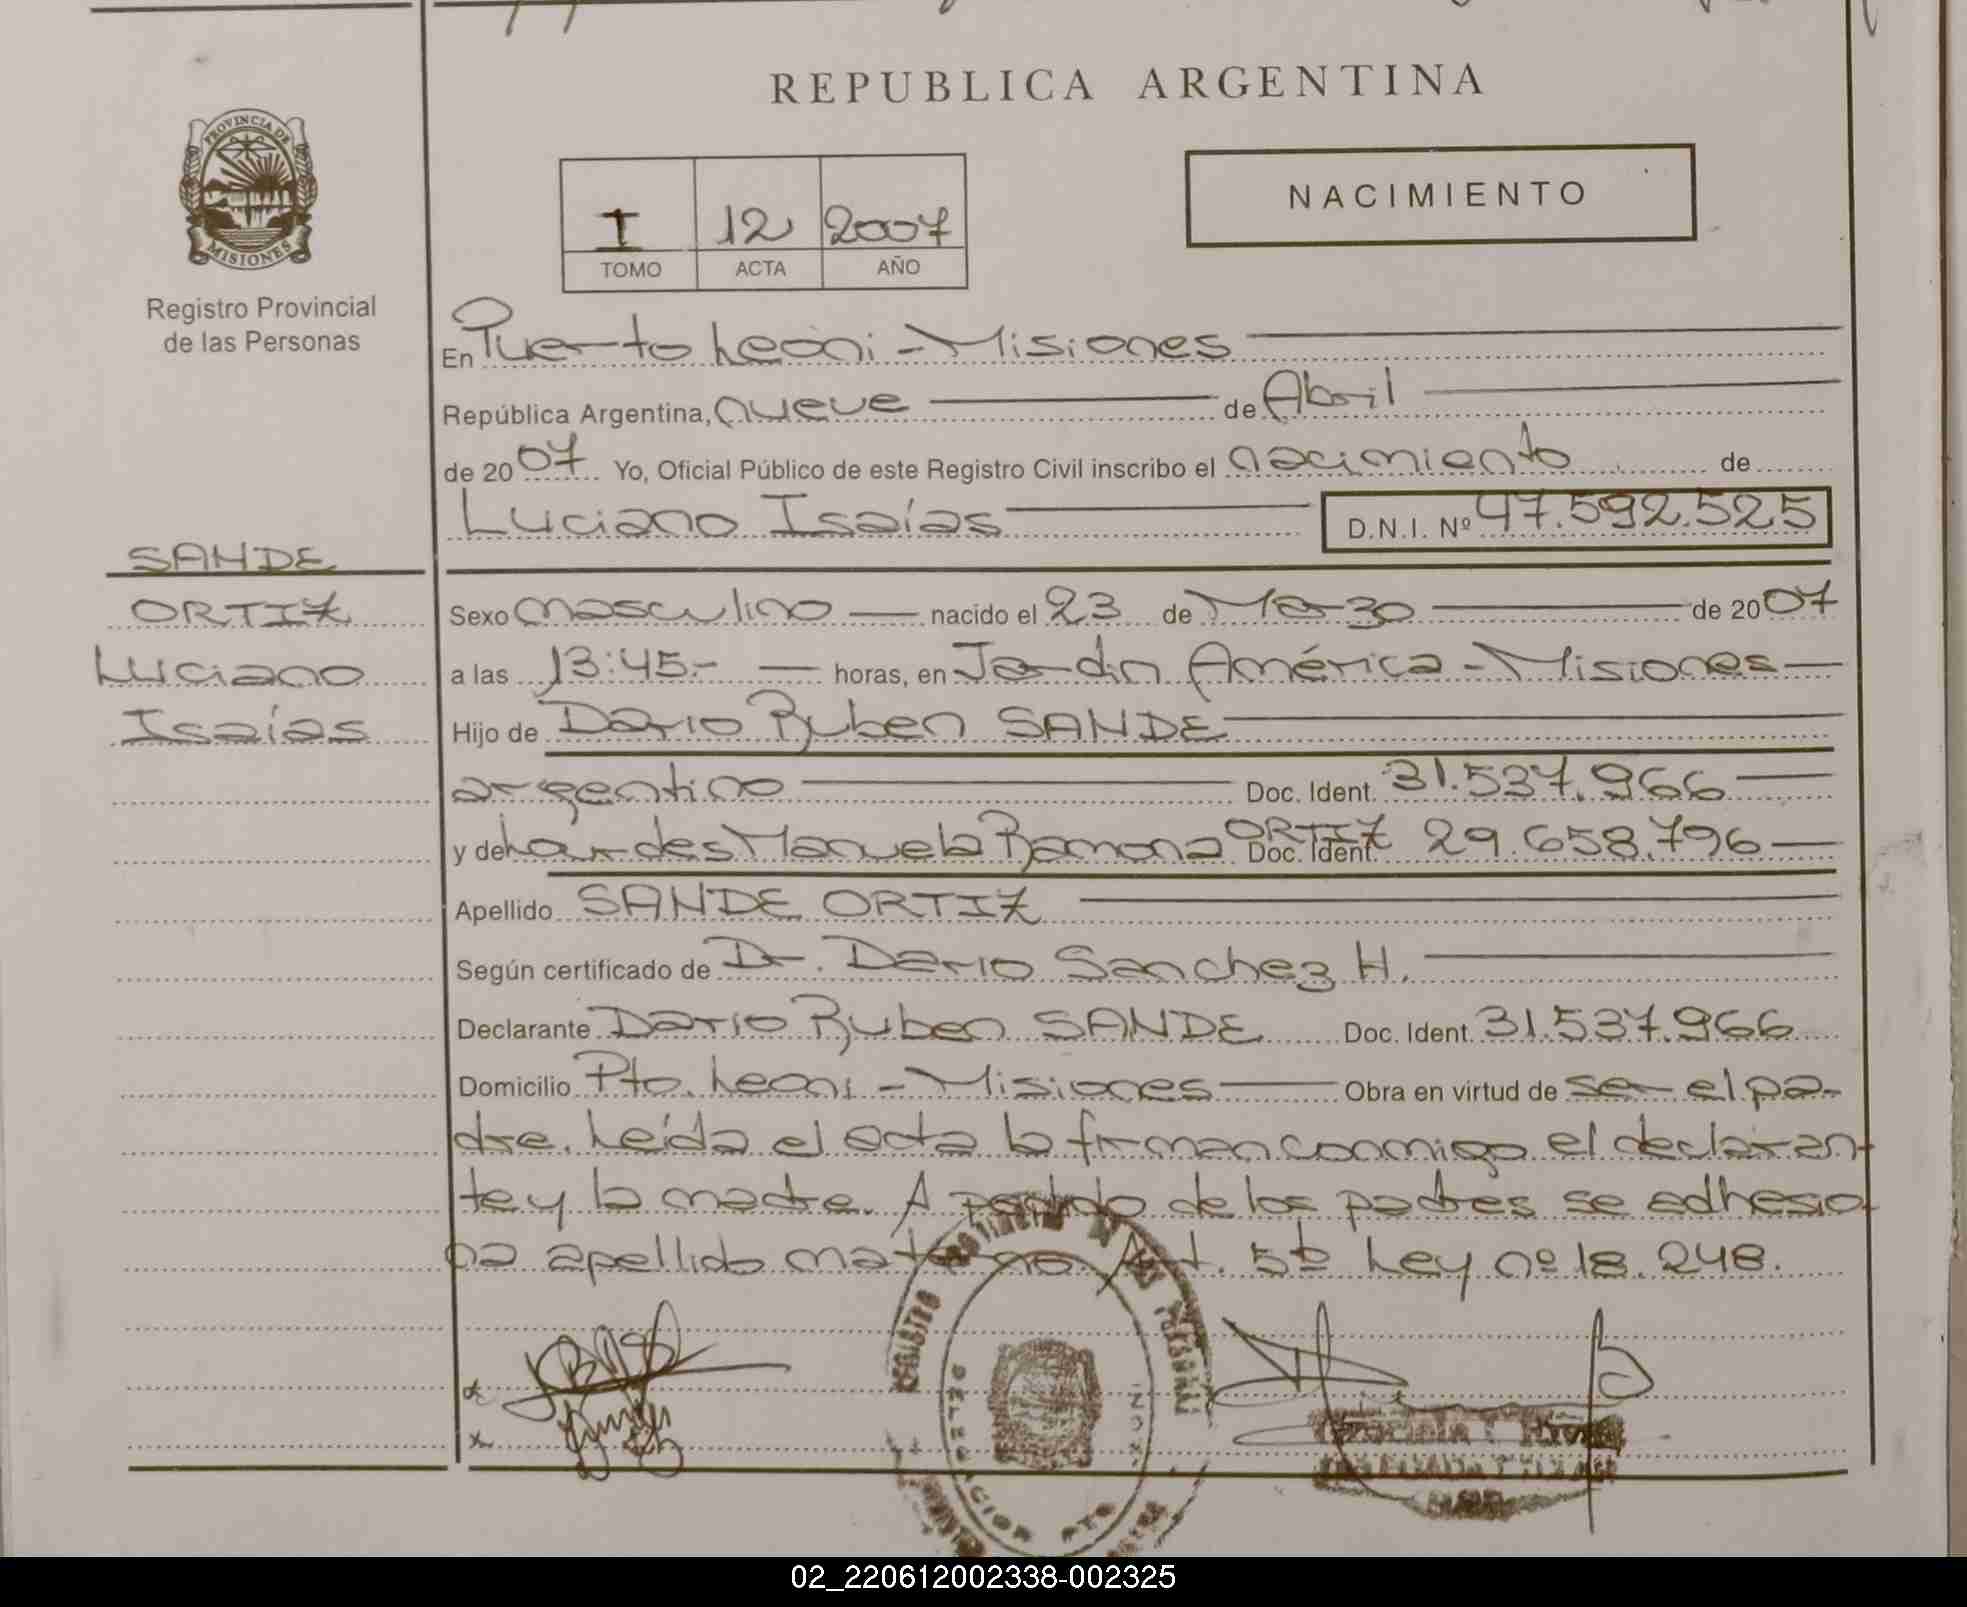 REPUBLICA ARGENTINA
PROVINCIA DE
MISIONES
Registro Provincial
de las Personas
NACIMIENTO
I 12 2007
TOMO ACTA AÑO
En Puerto Leoni - Misiones
República Argentina, nueve de Abril
de 2007 Yo, Oficial Público de este Registro Civil inscribo el nacimiento de
Luciano Isaías D.N.I. Nº 47.592.525
SANDE
ORTIZ
Luciano
Isaías
Sexo masculino nacido el 23 de Marzo de 2007
a las 13:45.- horas, en Jardin América - Misiones
Hijo de Dario Ruben SANDE
argentino Doc. Ident. 31.537.966
y de Lourdes Manuela Ramona ORTIZ Doc. Ident. 29.658.796
Apellido SANDE ORTIZ
Según certificado de Dr. Dario Sanchez H.
Declarante Dario Ruben SANDE Doc. Ident. 31.537.966
Domicilio Pto. Leoni - Misiones Obra en virtud de ser el pa-
dre. Leída el acta la firman conmigo el declaran-
te y la madre. A pedido de los padres se adhesio-
na apellido materno. Art. 5to Ley nº 18.248.
REGISTRO PROVINCIAL DE LAS PERSONAS
DELEGACION PTO
02_220612002338-002325